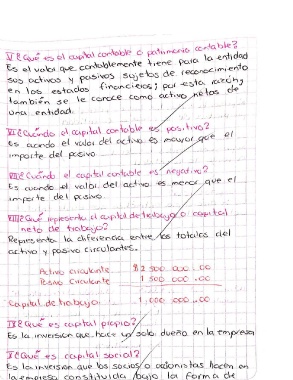 V ¿Qué es el capital contable o patrimonio contable?
Es el valor que contablemente tiene para la entidad
sus activos y pasivos sujetos de reconocimiento
en los estados financieros; por esta razón,
también se le conoce como activo netos de
una entidad.
VI ¿Cuándo el capital contable es positivo?
Es cuando el valor del activo es mayor que el
importe del pasivo
VII ¿Cuándo el capital contable es negativo?
Es cuando el valor del activo es menor que el
importe del pasivo.
VIII ¿Qué representa el capital de trabajo o capital
neto de trabajo?
Representa la diferencia entre los totales del
activo y pasivo circulantes.
Activo circulante $2 500 000.00
Pasivo Circulante 1 500 000.00
Capital de trabajo 1,000 000.00
IX ¿Qué es capital propio?
Es la inversión que hace un solo dueño en la empresa
X ¿Qué es capital social?
Es la inversión que los socios o accionistas hacen en
la empresa constituida bajo la forma de